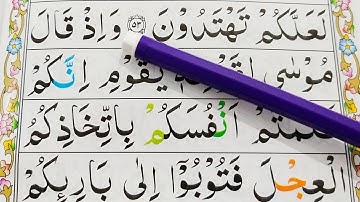 لَعَلَّكُمْ تَهْتَدُوْنَ ﴿۵۳﴾ وَاِذْ قَالَ
مُوْسٰى يٰقَوْمِ اِنَّكُمْ
ظَلَمْتُمْ اَنْفُسَكُمْ بِاتِّخَاذِكُمُ
الْعِجْلَ فَتُوْبُوْۤا اِلٰى بَارِىِٕكُمْ